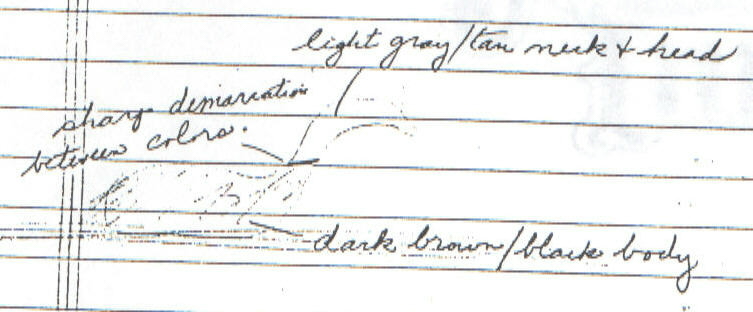 light gray/tan neck & head
sharp demarcation
between colors.
dark brown/black body